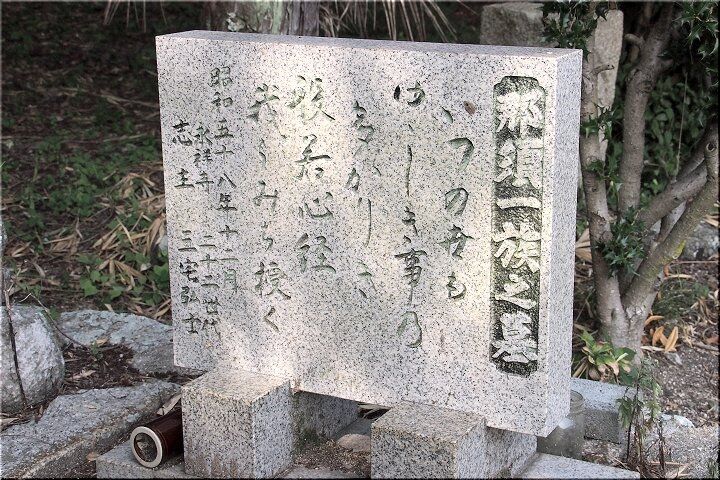 那須一族之墓
いつの世も
しき事の
かりき
般若心経
みち授く
昭和五十八年十二月
永祥寺 二十二世代
志主 三宅弘士